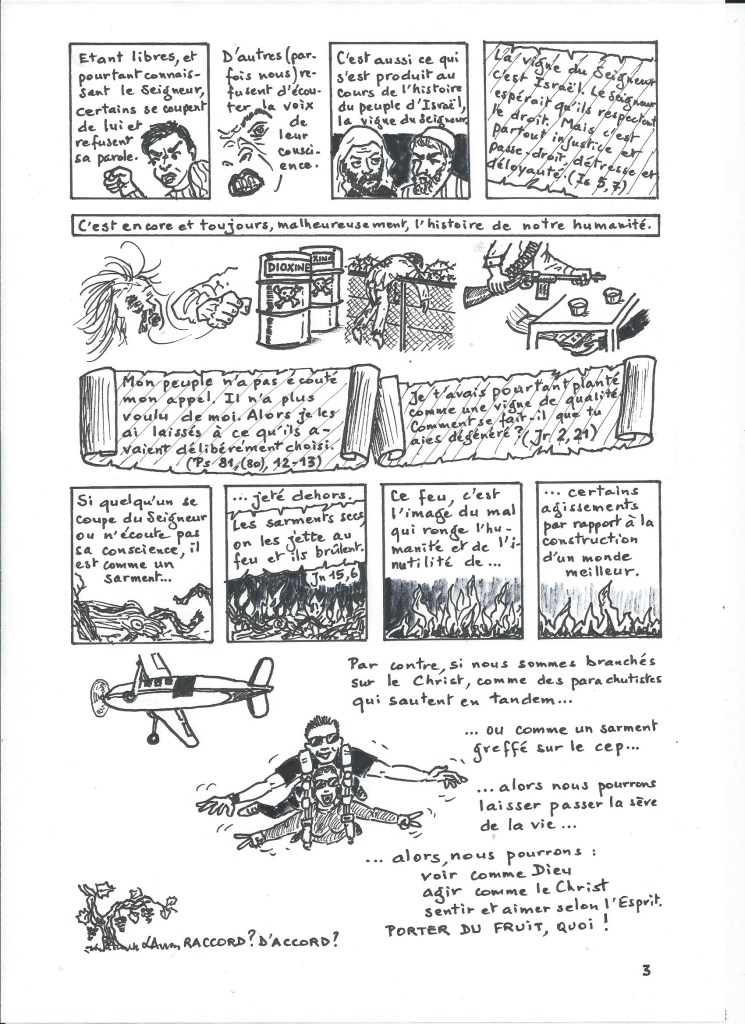 Etant libres, et
pourtant connais-
sant le Seigneur,
certains se coupent
de lui et
refusent
sa parole.
D'autres (par-
fois nous) re-
fusent d'écou-
ter la voix
de
leur
consci-
ence.
C'est aussi ce qui
s'est produit au
cours de l'histoire
du peuple d'Israël,
la vigne du Seigneur.
La vigne du Seigneur
c'est Israël. Le Seigneur
espérait qu'ils respectent
le droit. Mais c'est
partout injustice et
passe-droit, détresse et
déloyauté. (Is 5,7)
C'est encore et toujours, malheureusement, l'histoire de notre humanité.
DIOXINE
XINE
Mon peuple n'a pas écouté
mon appel. Il n'a plus
voulu de moi. Alors je les
ai laissés à ce qu'ils a-
vaient délibérément choisi.
(Ps 81, (80), 12-13)
Je t'avais pourtant planté
comme une vigne de qualité.
Comment se fait-il que tu
aies dégénéré ? (Jr 2, 21)
Si quelqu'un se
coupe du Seigneur
ou n'écoute pas
sa conscience, il
est comme un
sarment...
... jeté dehors.
Les sarments secs
on les jette au
feu et ils brûlent.
Jn 15,6
Ce feu, c'est
l'image du mal
qui ronge l'hu-
manité et de l'i-
nutilité de...
... certains
agissements
par rapport à la
construction
d'un monde
meilleur.
Par contre, si nous sommes branchés
sur le Christ, comme des parachutistes
qui sautent en tandem...
... ou comme un sarment
greffé sur le cep...
... alors nous pourrons
laisser passer la sève
de la vie...
... alors, nous pourrons :
voir comme Dieu
agir comme le Christ
sentir et aimer selon l'Esprit.
PORTER DU FRUIT, QUOI !
RACCORD ? D'ACCORD ?
3